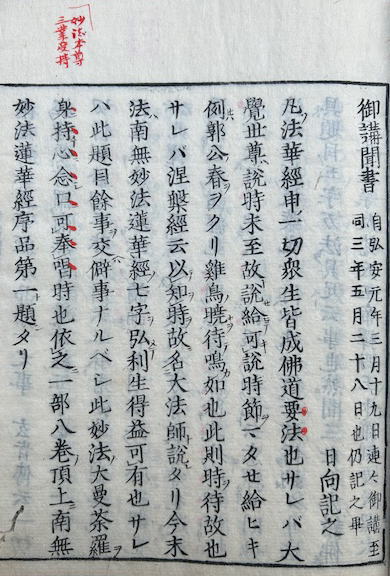 妙法本尊
三業受持
御講聞書
自弘安元年三月十九日連々御講至
同三年五月二十八日也仍記之畢
日向記之
凡法華經申一切衆生皆成佛道要法也サレバ大
覺世尊說時未至故說給可說時節マタせ給ヒキ
例郭公春ヲクリ雞鳥曉待鳴如也此則時待故也
サレバ涅槃經云以知時故名大法師說タリ今末
法南無妙法蓮華經七字弘利生得益可有也サレ
ハ此題目餘事交僻事ナルベシ此妙法大曼荼羅
身持心念口可奉唱時也依之一部八卷頂上南無
妙法蓮華經序品第一題タリ